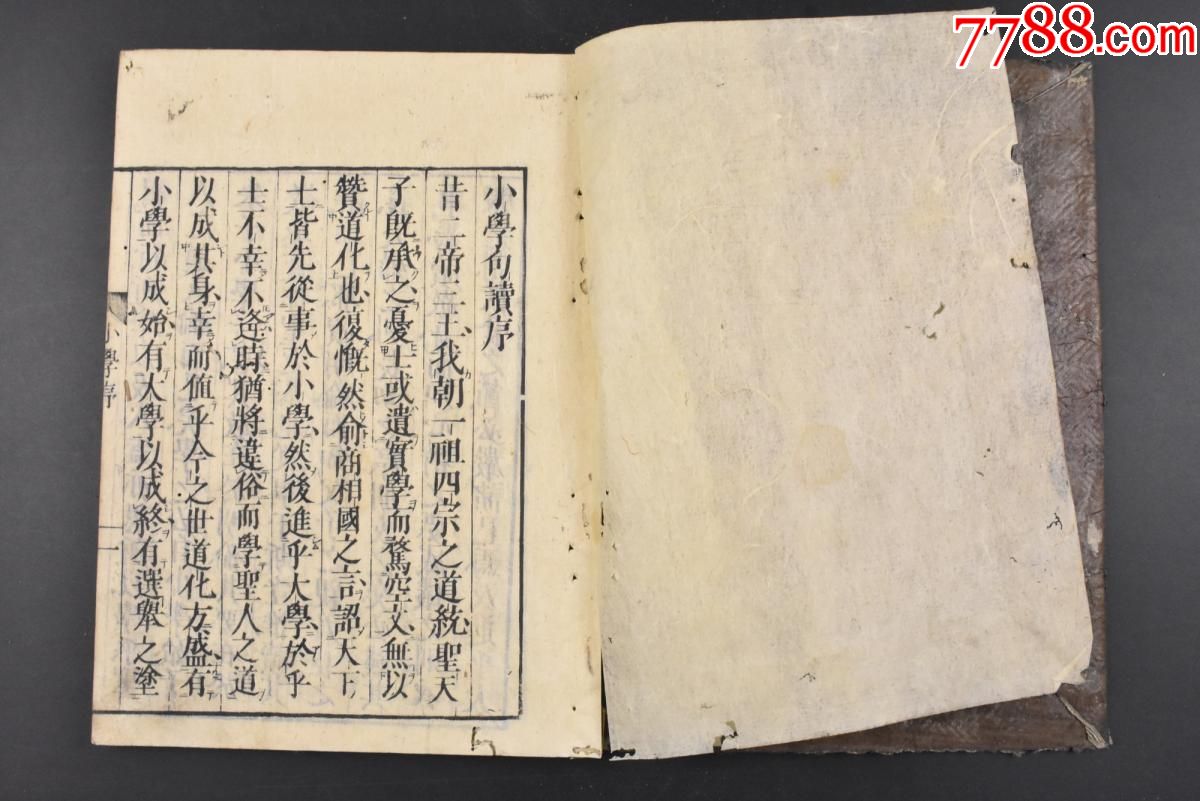 7788.com
小學句讀序
昔二帝三王我朝一祖四宗之道統聖天
子既承之憂士或遺實學而騖空文無以
贊道化也復慨然俞商相國之言詔天下
士皆先從事於小學然後進乎大學於乎
士不幸不逢時猶將違俗而學聖人之道
以成其身幸而值乎今之世道化方盛有
小學以成始有大學以成終有選舉之塗
小學序
一